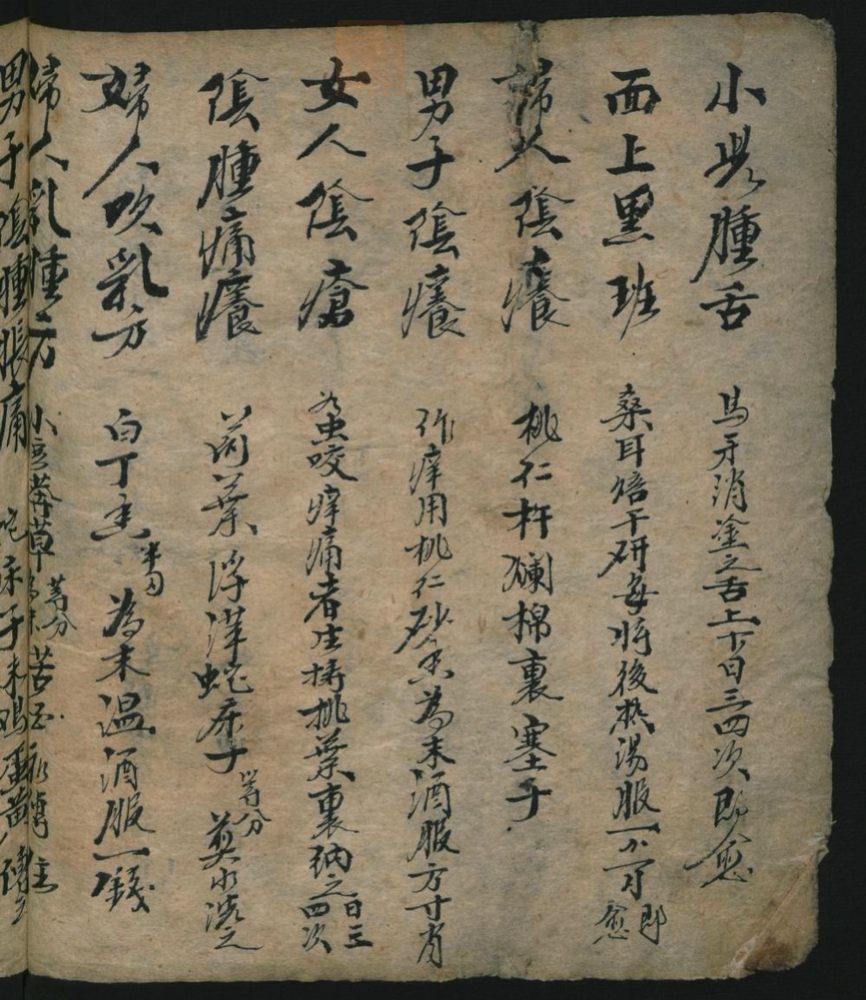 小兒腫舌 馬牙消塗之舌上下日三四次即愈
面上黑班 桑耳焙干研每將後热湯服一小可即愈
婦人陰癢 桃仁杵爛棉裹塞子
男子陰癢 作痒用桃仁砂末為末酒服方寸肖
女人陰瘡 為虫咬痒痛者生搗桃葉裹納之日三四次
陰腫痛癢 荷葉浮萍蛇床子等分煎水洗之
婦人吹乳方 白丁香半匁為末温酒服一錢
婦人乳腫方 莽草等分為末苦
男子陰腫脹痛 蛇床子末鷄蛋黄